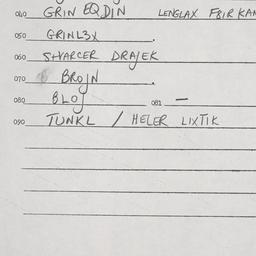 040 GRIN EQDIN LENGLAX F8IR KAN
050 GRINL3X
060 SHVARCER DRAJEK
070 BROJN
080 BLOJ 081 —
090 TUNKL / HELER LIXTIK